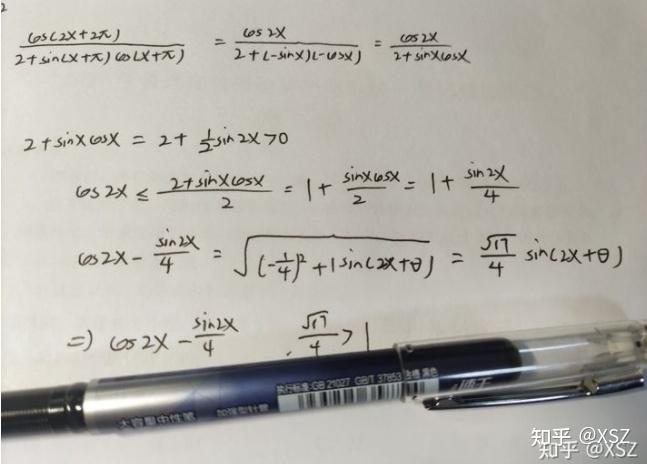 2
cos(2x+2π) / 2+sin(x+π)cos(x+π) = cos2x / 2+(-sinx)(-cosx) = cos2x / 2+sinxcosx
2+sinxcosx = 2+ 1/2 sin2x>0
cos2x ≤ 2+sinxcosx / 2 = 1+ sinxcosx / 2 = 1+ sin2x / 4
cos2x - sin2x / 4 = √((-1/4)²+1 sin(2x+θ)) = √17 / 4 sin(2x+θ)
=) cos2x - sin2x / 4 . √17 / 4 > 1
执行标准:GB 21027 GB/T 37853 主楼 黑色
大容量中性笔 加强型针管
知乎 @XSZ
知乎 @XSZ